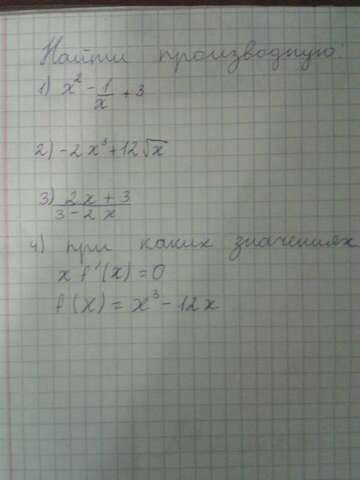 Найти производную:
1) x² - 1/x + 3
2) -2x³ + 12√x
3) (2x + 3)/(3 - 2x)
4) при каких значениях
x f'(x) = 0
f(x) = x³ - 12x